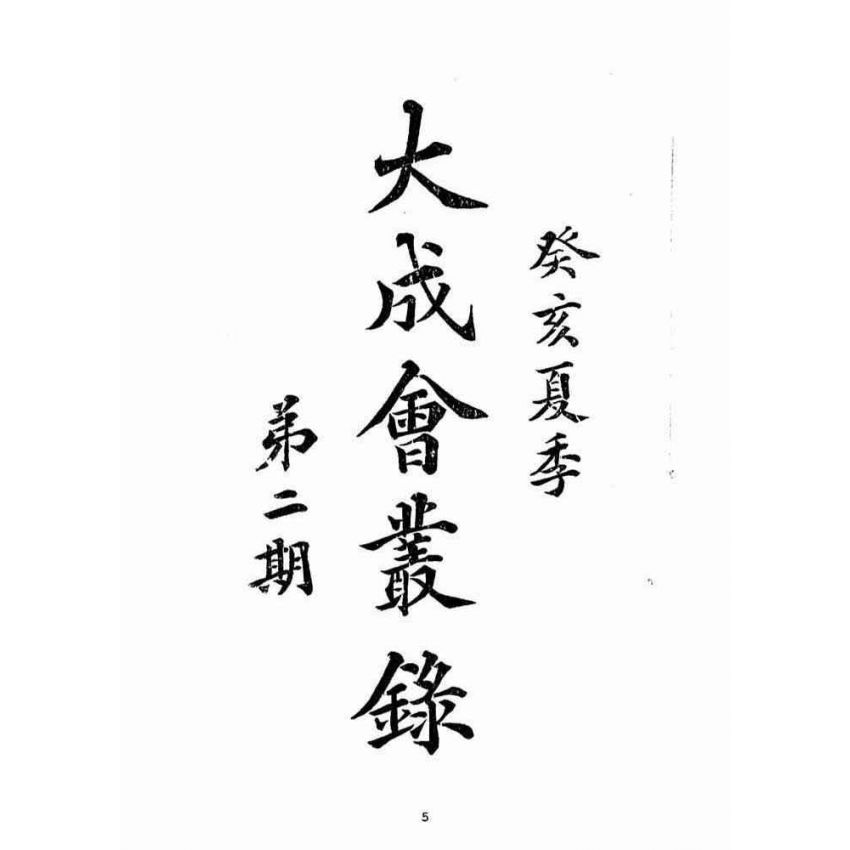 癸亥夏季
大成會叢錄
弟二期
5